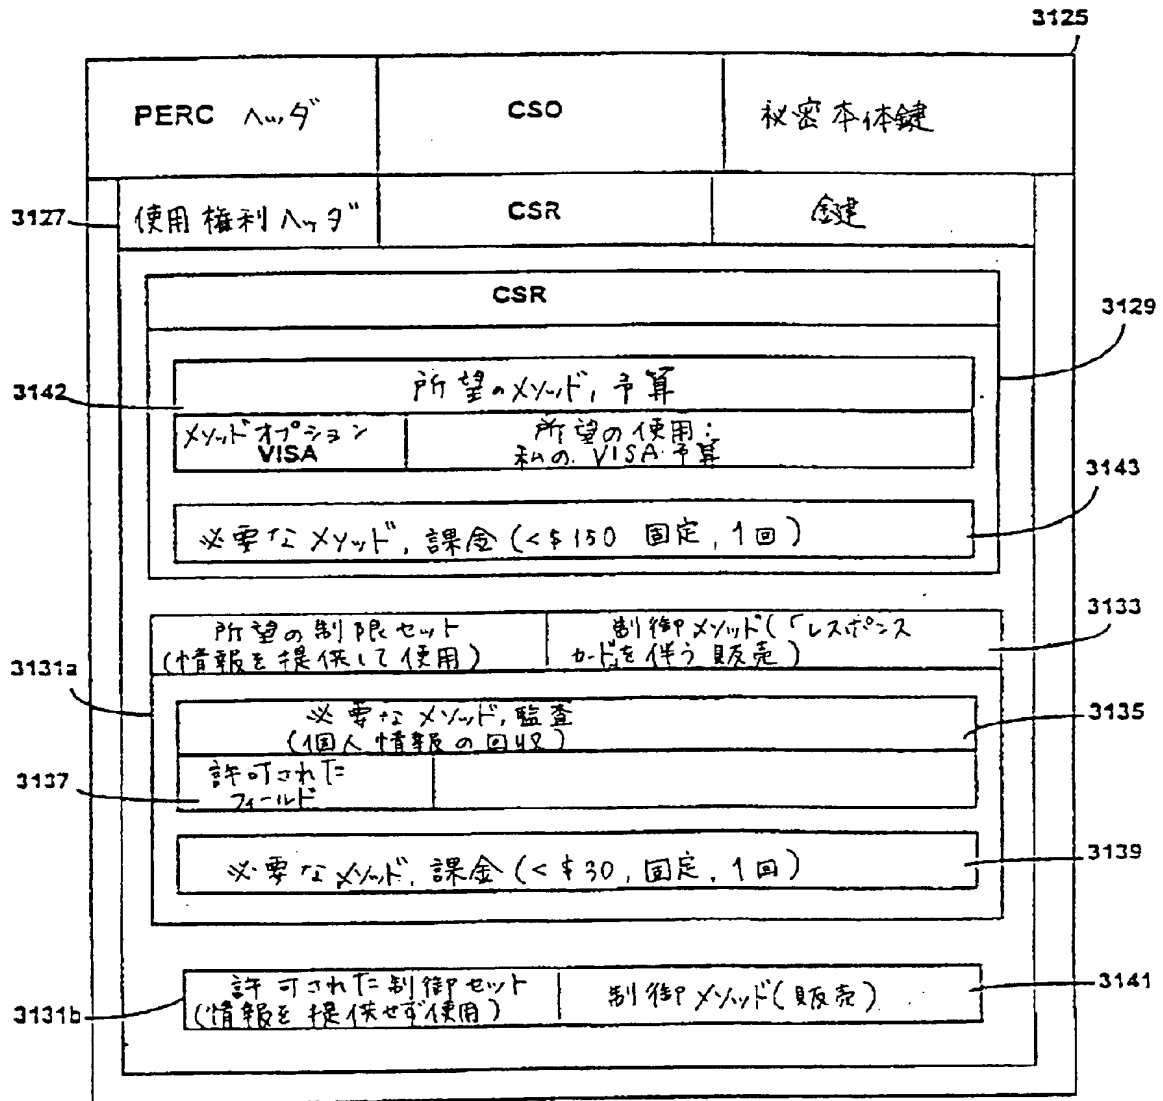 3125
PERC ヘッダ
CSO
秘密本体鍵
3127
使用権利ヘッダ
CSR
鍵
CSR
3129
3142
所望のメソッド, 予算
メソッドオプション
VISA
所望の使用:
私の VISA 予算
3143
必要なメソッド, 課金 (<$150 固定, 1回)
3133
所望の制限セット
(情報を提供して使用)
制御メソッド(「レスポンス
カード」を伴う 販売)
3131a
必要なメソッド, 監査
(個人情報の回収)
3135
3137
許可された
フィールド
必要なメソッド, 課金 (<$30, 固定, 1回)
3139
許可された制御セット
(情報を提供せず使用)
制御メソッド(販売)
3141
3131b